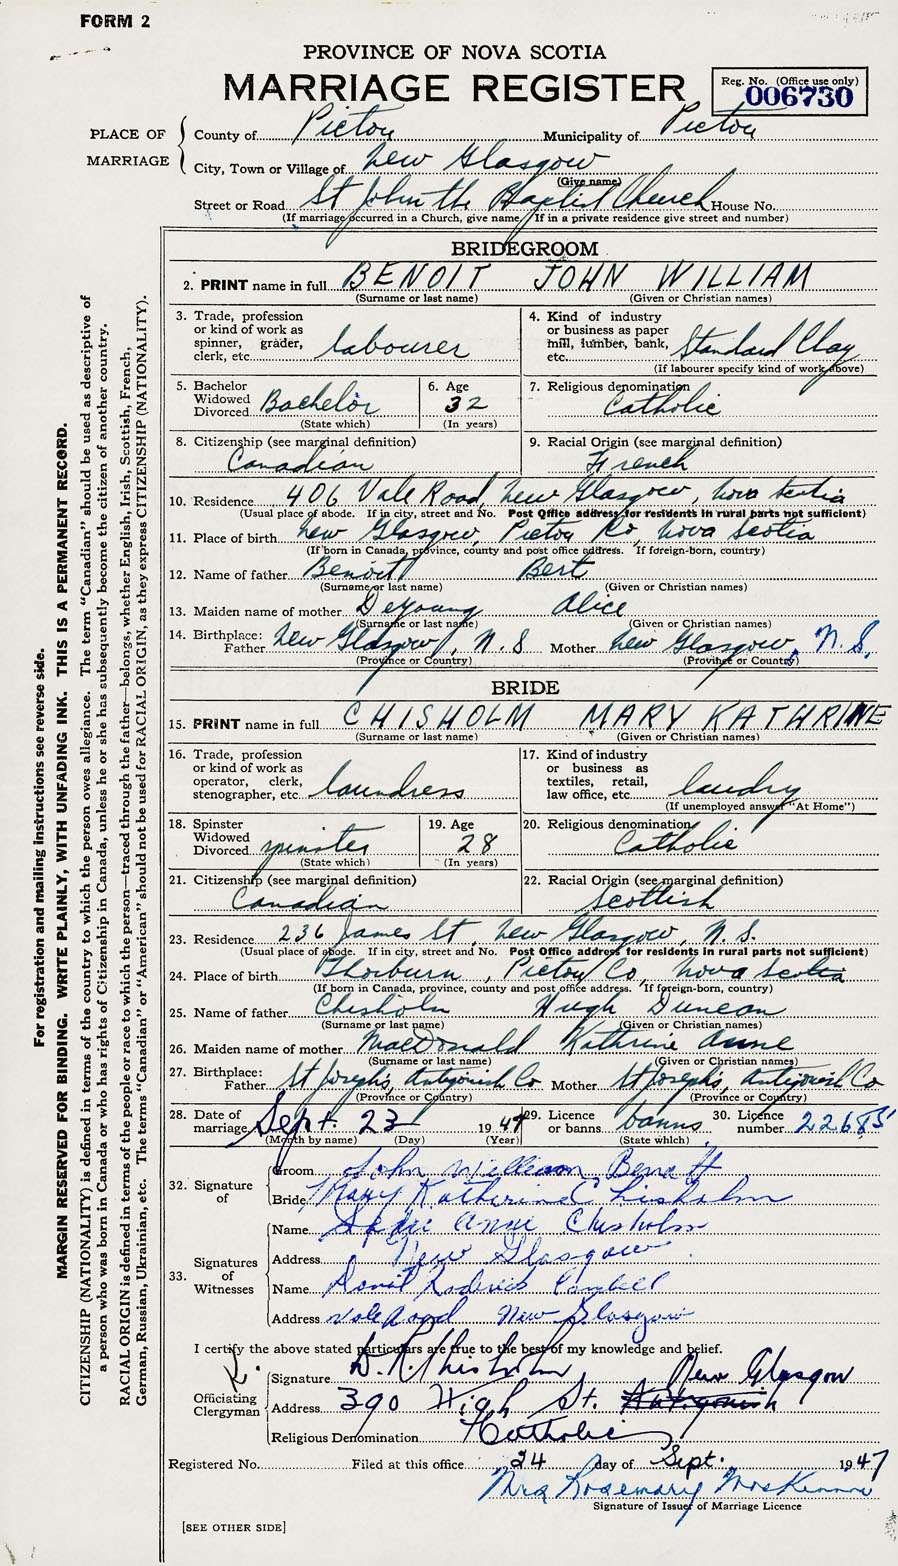 FORM 2
PROVINCE OF NOVA SCOTIA
MARRIAGE REGISTER
Reg. No. (Office use only)
006730
PLACE OF MARRIAGE
County of Pictou Municipality of Pictou
City, Town or Village of New Glasgow
(Give name)
Street or Road St John the Baptist Church House No.
(If marriage occurred in a Church, give name If in a private residence give street and number)
BRIDEGROOM
2. PRINT name in full BENOIT JOHN WILLIAM
(Surname or last name) (Given or Christian names)
3. Trade, profession or kind of work as spinner, grader, clerk, etc. labourer
4. Kind of industry or business as paper mill, lumber, bank, etc. Standard Clay
(If labourer specify kind of work above)
5. Bachelor Widowed Divorced Bachelor
(State which)
6. Age 32
(In years)
7. Religious denomination Catholic
8. Citizenship (see marginal definition) Canadian
9. Racial Origin (see marginal definition) French
10. Residence 406 Vale Road, New Glasgow, Nova Scotia
(Usual place of abode. If in city, street and No. Post Office address for residents in rural parts not sufficient)
11. Place of birth New Glasgow, Pictou Co, Nova Scotia
(If born in Canada, province, county and post office address. If foreign-born, country)
12. Name of father Benoit Bert
(Surname or last name) (Given or Christian names)
13. Maiden name of mother DeYoung Alice
(Surname or last name) (Given or Christian names)
14. Birthplace: Father New Glasgow, N.S Mother New Glasgow, N.S.
(Province or Country) (Province or Country)
BRIDE
15. PRINT name in full CHISHOLM MARY KATHRINE
(Surname or last name) (Given or Christian names)
16. Trade, profession or kind of work as operator, clerk, stenographer, etc. laundress
17. Kind of industry or business as textiles, retail, law office, etc. laundry
(If unemployed answer "At Home")
18. Spinster Widowed Divorced spinster
(State which)
19. Age 28
(In years)
20. Religious denomination Catholic
21. Citizenship (see marginal definition) Canadian
22. Racial Origin (see marginal definition) Scottish
23. Residence 236 James St, New Glasgow, N.S.
(Usual place of abode. If in city, street and No. Post Office address for residents in rural parts not sufficient)
24. Place of birth Thorburn, Pictou Co, Nova Scotia
(If born in Canada, province, county and post office address. If foreign-born, country)
25. Name of father Chisholm Hugh Duncan
(Surname or last name) (Given or Christian names)
26. Maiden name of mother MacDonald Kathrine Anne
(Surname or last name) (Given or Christian names)
27. Birthplace: Father St Joseph's, Antigonish Co Mother St Joseph's, Antigonish Co
(Province or Country) (Province or Country)
28. Date of marriage Sept. 23 1947
(Month by name) (Day) (Year)
29. Licence or banns banns
(State which)
30. Licence number 22685
32. Signature of
Groom John William Benoit
Bride Mary Katherine Chisholm
33. Signatures of Witnesses
Name Sadie Anne Chisholm
Address New Glasgow
Name Roderick
Address Vale Road New Glasgow
I certify the above stated particulars are true to the best of my knowledge and belief.
Officiating Clergyman
Signature D.R. Chisholm
Address 390 High St. Antigonish New Glasgow
Religious Denomination Catholic
Registered No. Filed at this office 24 day of Sept. 1947
Mrs Rosemary
Signature of Issuer of Marriage Licence
[SEE OTHER SIDE]
For registration and mailing instructions see reverse side.
MARGIN RESERVED FOR BINDING. WRITE PLAINLY, WITH UNFADING INK. THIS IS A PERMANENT RECORD.
CITIZENSHIP (NATIONALITY) is defined in terms of the country to which the person owes allegiance. The term "Canadian" should be used as descriptive of
a person who was born in Canada or who has rights of Citizenship in Canada, unless he or she has subsequently become the citizen of another country.
RACIAL ORIGIN is defined in terms of the people or race to which the person—traced through the father—belongs, whether English, Irish, Scottish, French,
German, Russian, Ukrainian, etc. The terms "Canadian" or "American" should not be used for RACIAL ORIGIN, as they express CITIZENSHIP (NATIONALITY).